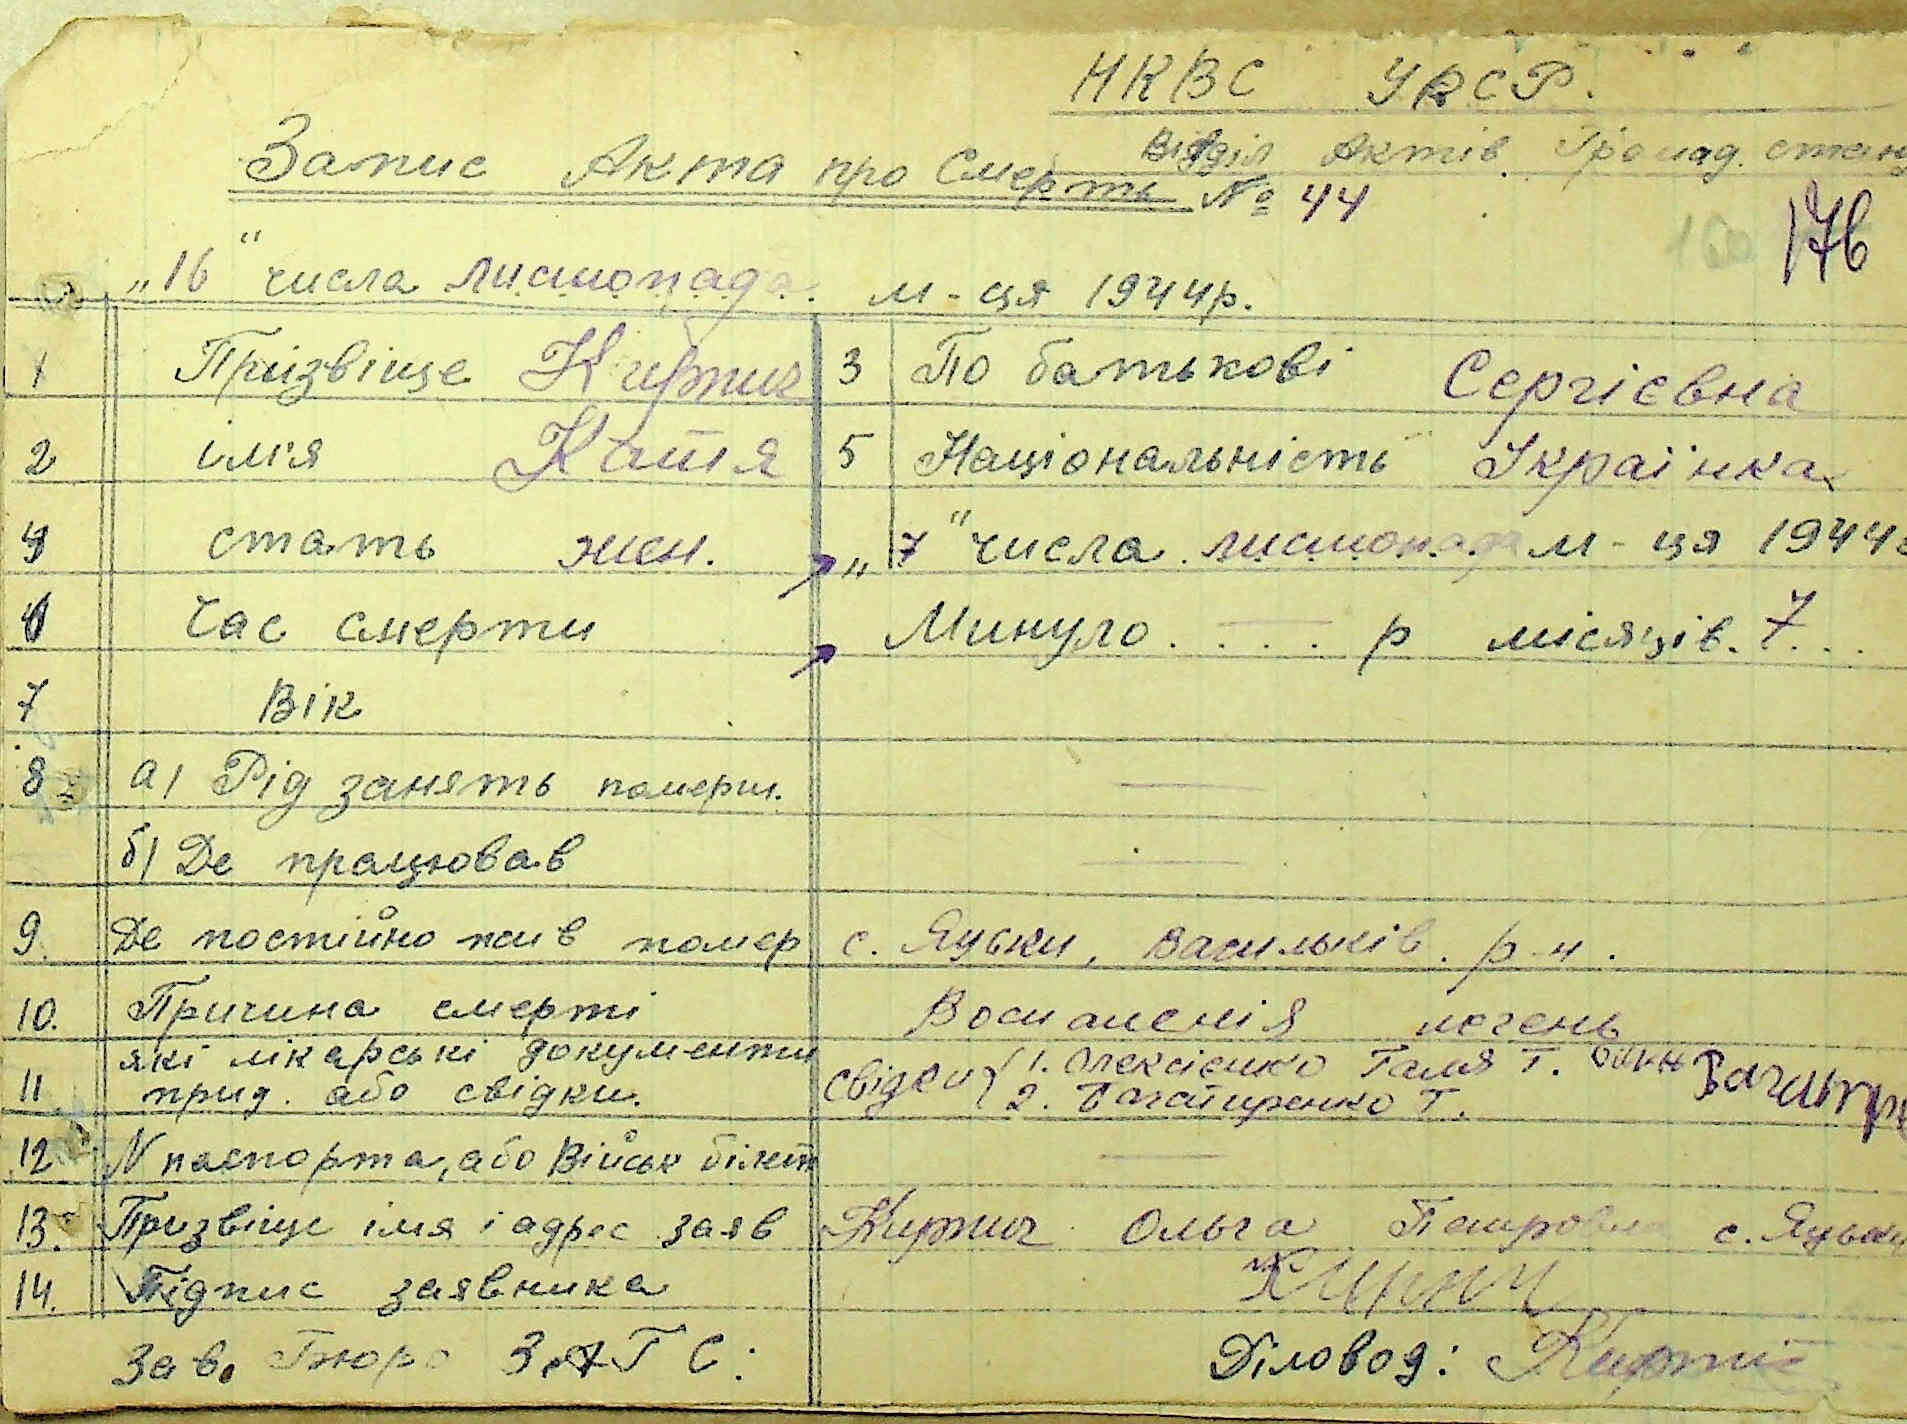 НКВС УРСР.
Відділ Актів Громад. стану
Запис Акта про Смерть № 44
176
„16" числа листопада м-ця 1944р.
1 Призвіще Киртич 3 По батькові Сергієвна
2 ім'я Катя 5 Національність Українка
4 стать жен. „7" числа листопада м-ця 1944
6 Час смерти Минуло .... р місяців. 7...
7 Вік
8 а) Рід занять померш.
б) Де працював
9. Де постійно жив помер с. Яцьки, Васильків. р-н.
10. Причина смерті Воспаленія легень
11 які лікарські документи прид. або свідки. свідки { 1. Олексієнко Галя Т.
2. Багатиренко Т.
12 N паспорта, або Військ білет
13. Призвіще імя і адрес заяв Киртич Ольга Петровна с. Яцьки
14. Підпис заявника
Зав. Бюро ЗАГС: Діловод: